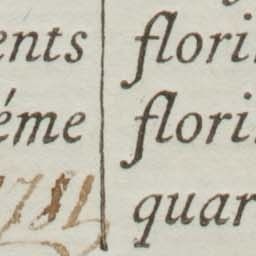 ents flori
éme flori
quar